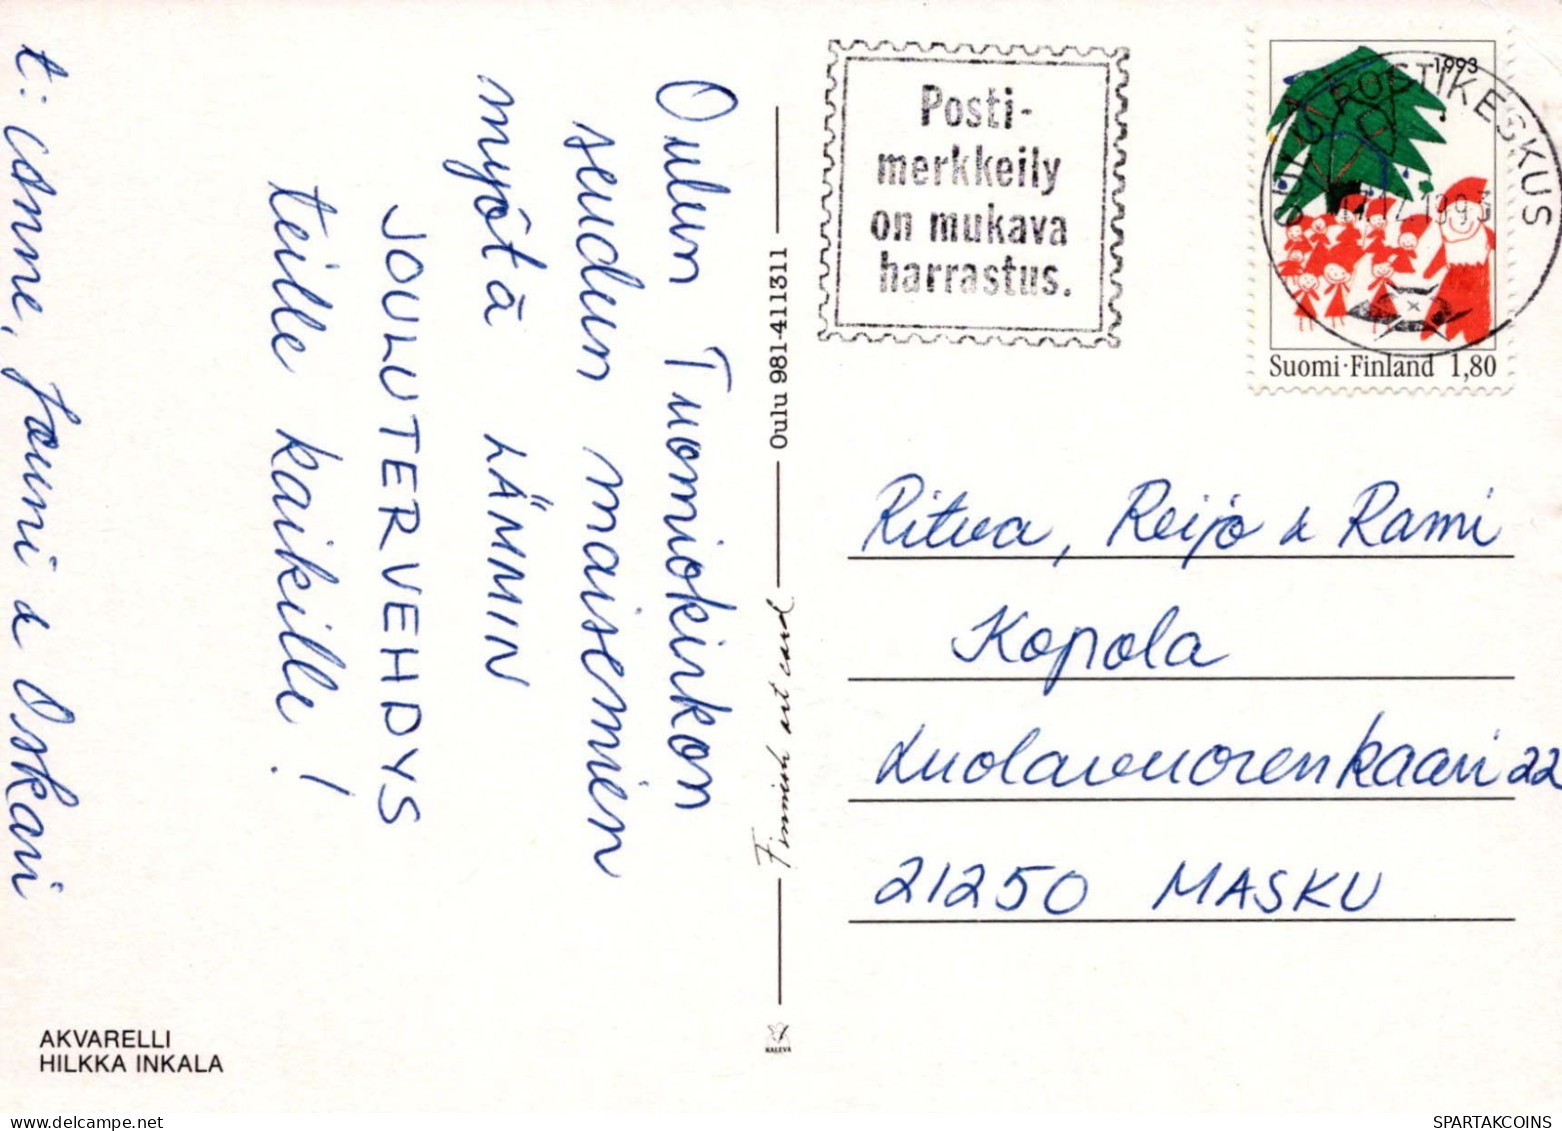 Oulun Tuomiokirkon
seudun maisemien
myötä LÄMMIN
JOULUTERVEHDYS
teille kaikille!
t: Anne, Jouni & Oskari
AKVARELLI
HILKKA INKALA
Oulu 981-411311
Finnish art card
KALEVA
Posti-
merkkeily
on mukava
harrastus.
1993
OULU POSTIKESKUS
1993
Suomi·Finland 1,80
Ritva, Reijo & Rami
Kopola
Luolavuorenkaari 22
21250 MASKU
SPARTAKCOINS